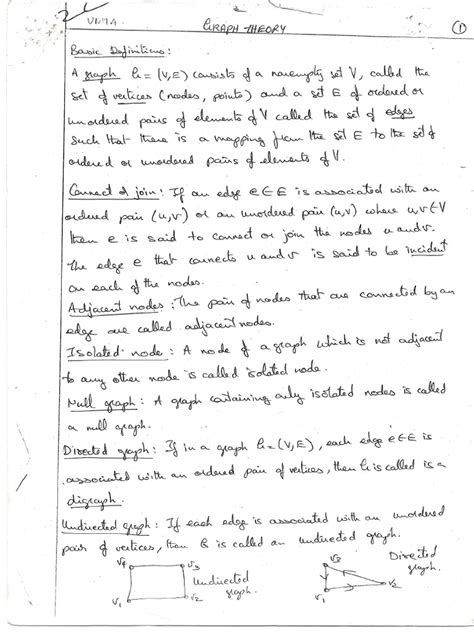 GRAPH THEORY
1
Basic Definitions:
A graph G = (V,E) consists of a nonempty set V, called the
set of vertices (nodes, points) and a set E of ordered or
unordered pairs of elements of V called the set of edges
such that there is a mapping from the set E to the set of
ordered or unordered pairs of elements of V.
Connect or join: If an edge e∈E is associated with an
ordered pair (u,v) or an unordered pair (u,v) where u,v∈V
then e is said to connect or join the nodes u and v.
The edge e that connects u and v is said to be incident
on each of the nodes.
Adjacent nodes: The pair of nodes that are connected by an
edge are called adjacent nodes.
Isolated node: A node of a graph which is not adjacent
to any other node is called isolated node.
Null graph: A graph containing only isolated nodes is called
a null graph.
Directed graph: If in a graph G=(V,E), each edge e∈E is
associated with an ordered pair of vertices, then G is called is a
digraph.
Undirected graph: If each edge is associated with an unordered
pair of vertices, then G is called an undirected graph.
V4 V3 Undirected graph. V1 V2
V3 Directed graph. V1 V2